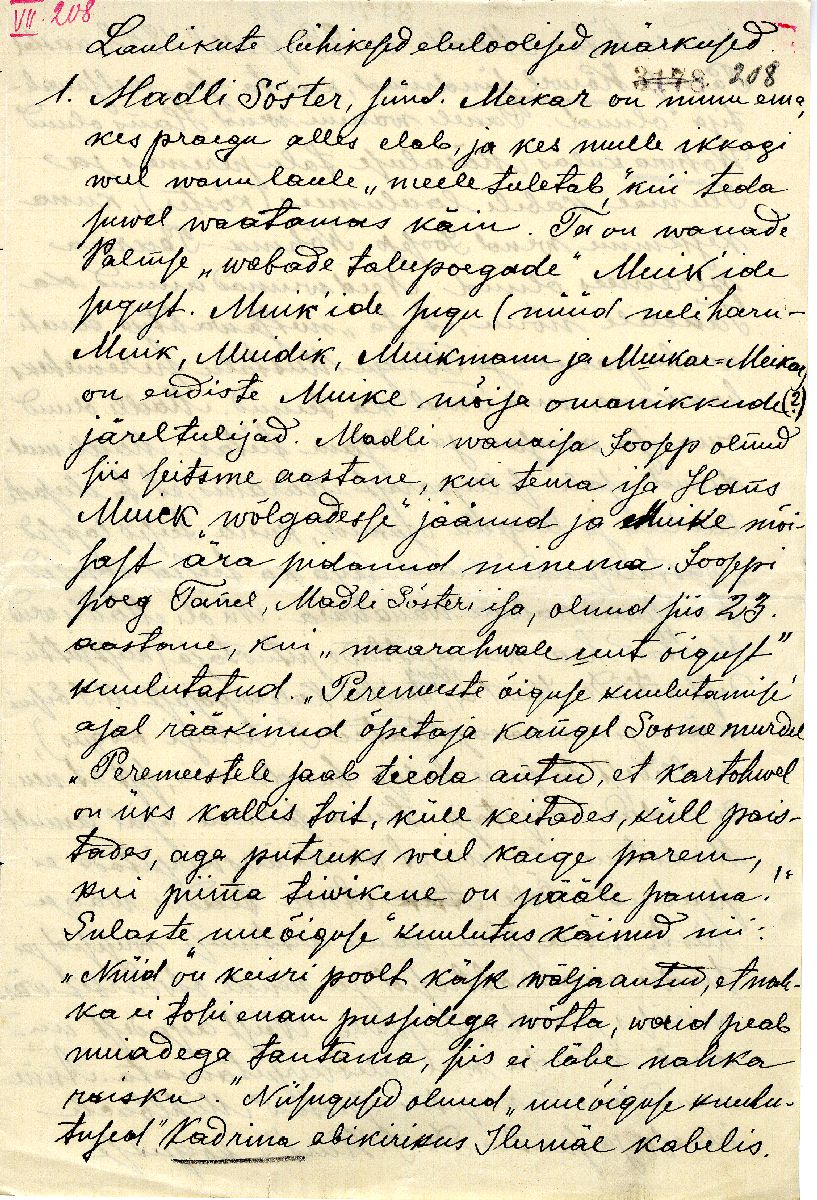 VII 208
Laulikute lühikesed eluloolised märkused.
3178 208
1. Madli Sõster, sünd. Meikar on minu ema,
kes praegu alles elab, ja kes mulle ikkagi
weel wanu laule „meele tuletab," kui teda
suwel waatamas käin. Ta on wanade
Palmse „wabade talupoegade" Muik'ide
sugust. Muik'ide sugu (nüüd neli haru –
Muik, Muidik, Muikmann ja Muikar = Meikar)
on endiste Muike mõisa omanikkude (?)
järeltulijad. Madli wanaisa Joosep olnud
siis seitsme aastane, kui tema isa Hans
Muick „wõlgadesse" jäänud ja Muike mõi-
sast ära pidanud minema. Joosepi
poeg Tanel, Madli Sõsteri isa, olnud siis 23.
aastane, kui „maarahwale uut õigust"
kuulutatud. „Peremeeste õiguse kuulutamise"
ajal rääkinud õpetaja kangel Soome murdel
„Peremeestele saab tieda antud, et kartohwel
on üks kallis toit, küll keitades, küll pais-
tades, aga putruks weel kaige parem,
kui piima tiwikene on pääle panna!"
Sulaste „uueõiguse" kuulutus käinud nii:
„Nüid on keisri poolt käsk wälja antud, et nah-
ka ei tohi enam pussidega wõtta, waid peab
nuiadega tantama, siis ei lähe nahka
raisku." Niisugused olnud „uueõiguse kuulu-
tused" Kadrina abikirikus Ilumäe kabelis.